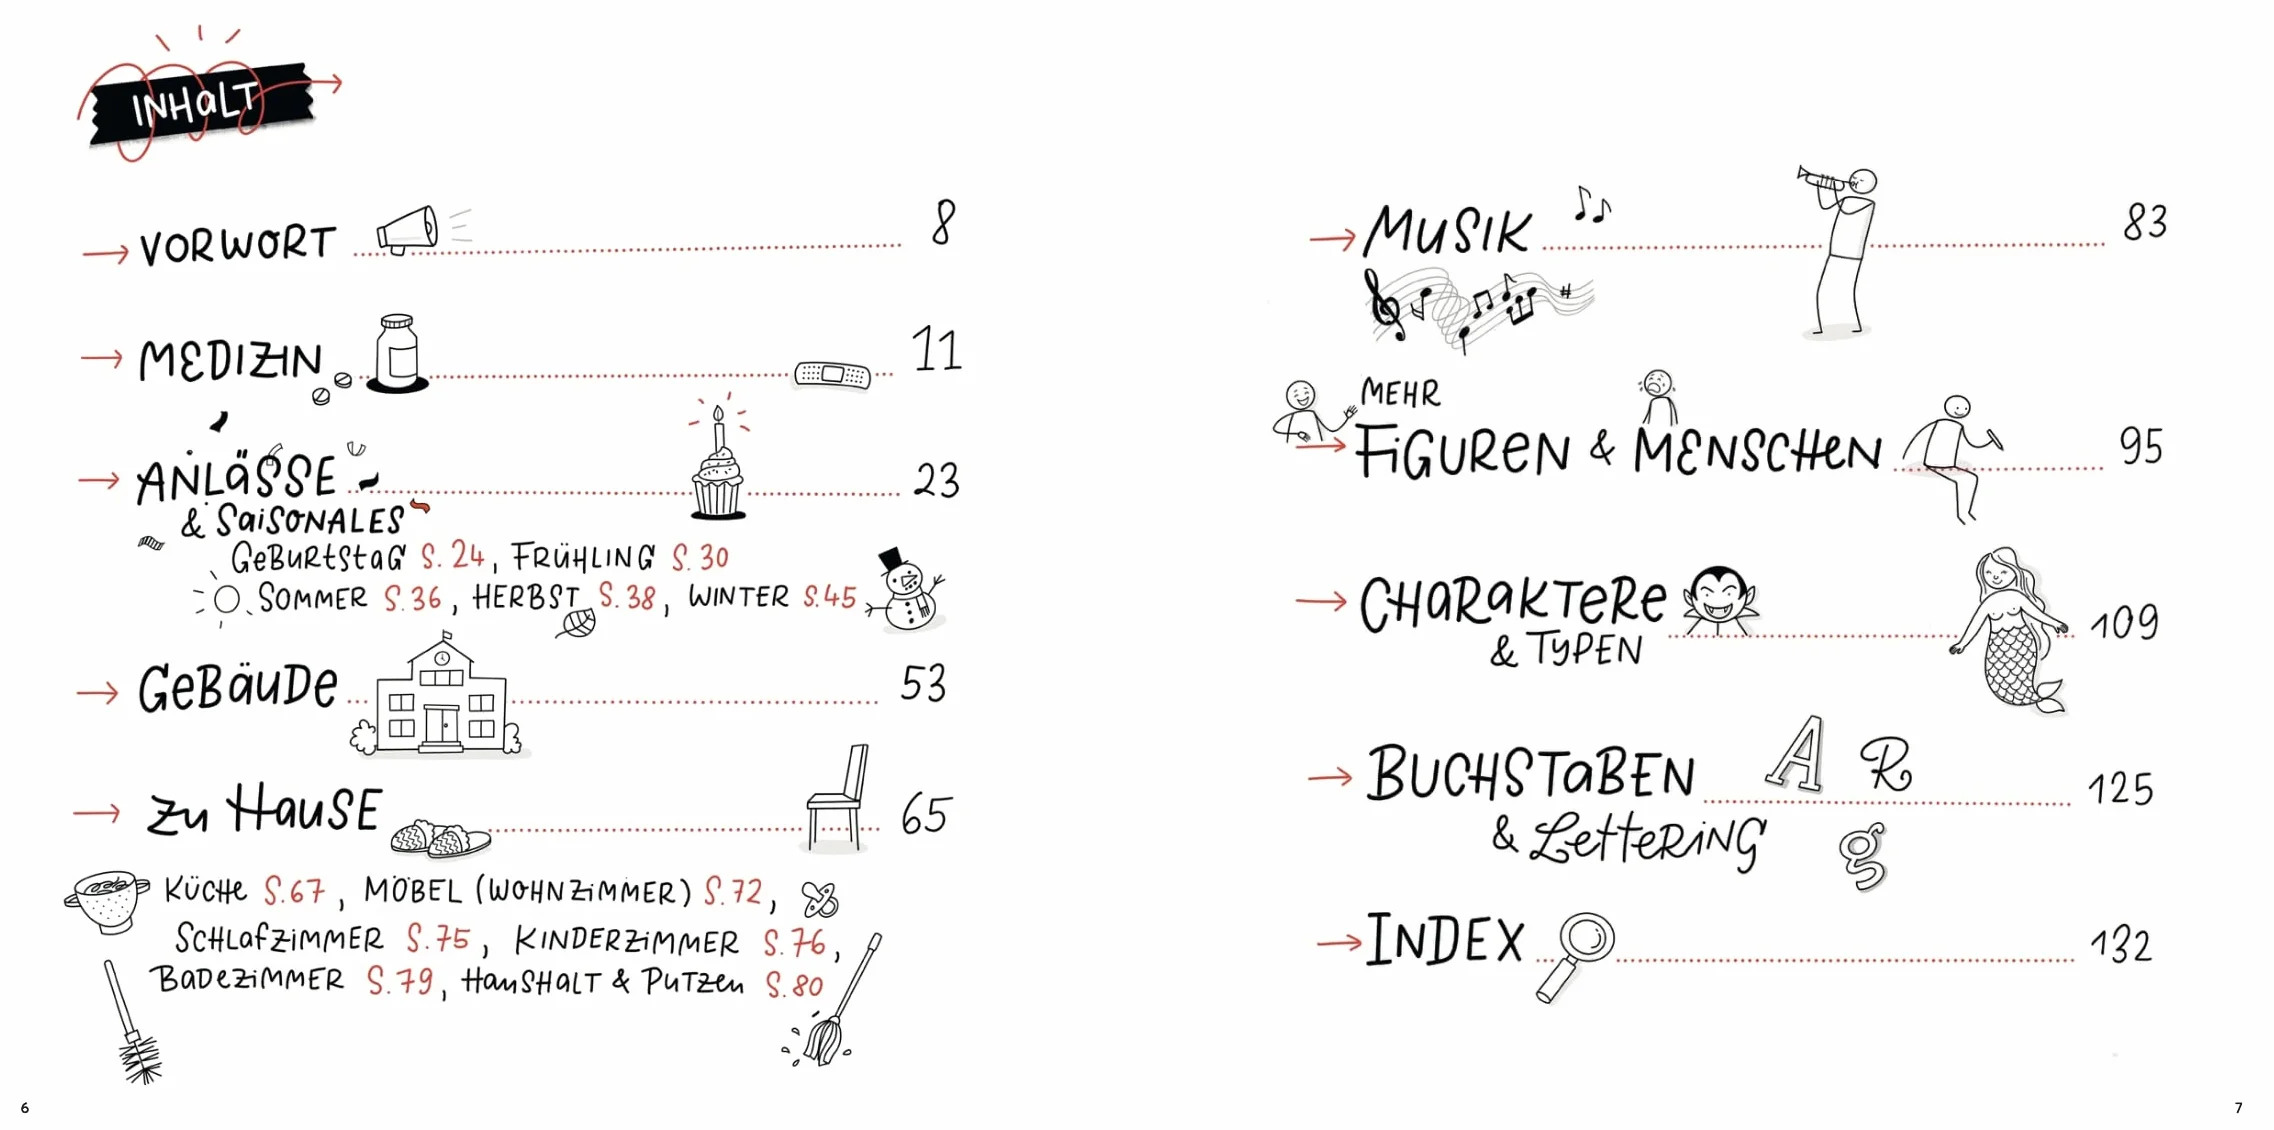 INHALT
VORWORT 8
MEDIZIN 11
ANLÄSSE 23
& SAISONALES
GEBURTSTAG S. 24, FRÜHLING S. 30
SOMMER S. 36, HERBST S. 38, WINTER S. 45
GEBÄUDE 53
ZU HAUSE 65
KÜCHE S. 67, MÖBEL (WOHNZIMMER) S. 72,
SCHLAFZIMMER S. 75, KINDERZIMMER S. 76,
BADEZIMMER S. 79, HAUSHALT & PUTZEN S. 80
6
MUSIK 83
MEHR
FIGUREN & MENSCHEN 95
CHARAKTERE 109
& TYPEN
BUCHSTABEN A R 125
& LETTERING g
INDEX 132
7